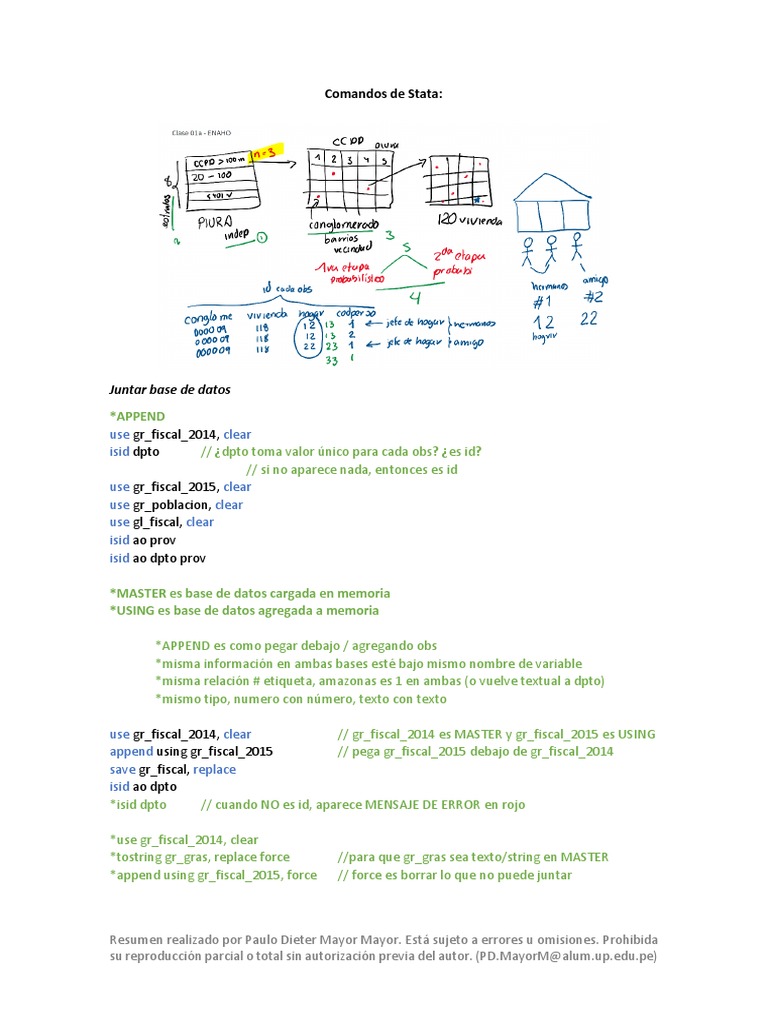 Comandos de Stata:
Clase 01a - ENAHO
CCPP > 100 m
n = 3
20 - 100
< 401 V
8
estratos
PIURA
indep
CCPP
piura
1 2 3 4 5
conglomerado
barrios
vecindad
120 vivienda
3
S
1ra etapa
probabilístico
2da etapa
probabi
4
id cada obs
conglome vivienda hogar codperso
000009 118 12 13 1 ← jefe de hogar } hermanos
000009 118 12 13 2
000009 118 22 23 1 ← jefe de hogar } amigo
33 1
hermanos amigo
#1 #2
12 22
hogar
Juntar base de datos
*APPEND
use gr_fiscal_2014, clear
isid dpto // ¿dpto toma valor único para cada obs? ¿es id?
// si no aparece nada, entonces es id
use gr_fiscal_2015, clear
use gr_poblacion, clear
use gl_fiscal, clear
isid ao prov
isid ao dpto prov
*MASTER es base de datos cargada en memoria
*USING es base de datos agregada a memoria
*APPEND es como pegar debajo / agregando obs
*misma información en ambas bases esté bajo mismo nombre de variable
*misma relación # etiqueta, amazonas es 1 en ambas (o vuelve textual a dpto)
*mismo tipo, numero con número, texto con texto
use gr_fiscal_2014, clear // gr_fiscal_2014 es MASTER y gr_fiscal_2015 es USING
append using gr_fiscal_2015 // pega gr_fiscal_2015 debajo de gr_fiscal_2014
save gr_fiscal, replace
isid ao dpto
*isid dpto // cuando NO es id, aparece MENSAJE DE ERROR en rojo
*use gr_fiscal_2014, clear
*tostring gr_gras, replace force //para que gr_gras sea texto/string en MASTER
*append using gr_fiscal_2015, force // force es borrar lo que no puede juntar
Resumen realizado por Paulo Dieter Mayor Mayor. Está sujeto a errores u omisiones. Prohibida
su reproducción parcial o total sin autorización previa del autor. (PD.MayorM@alum.up.edu.pe)